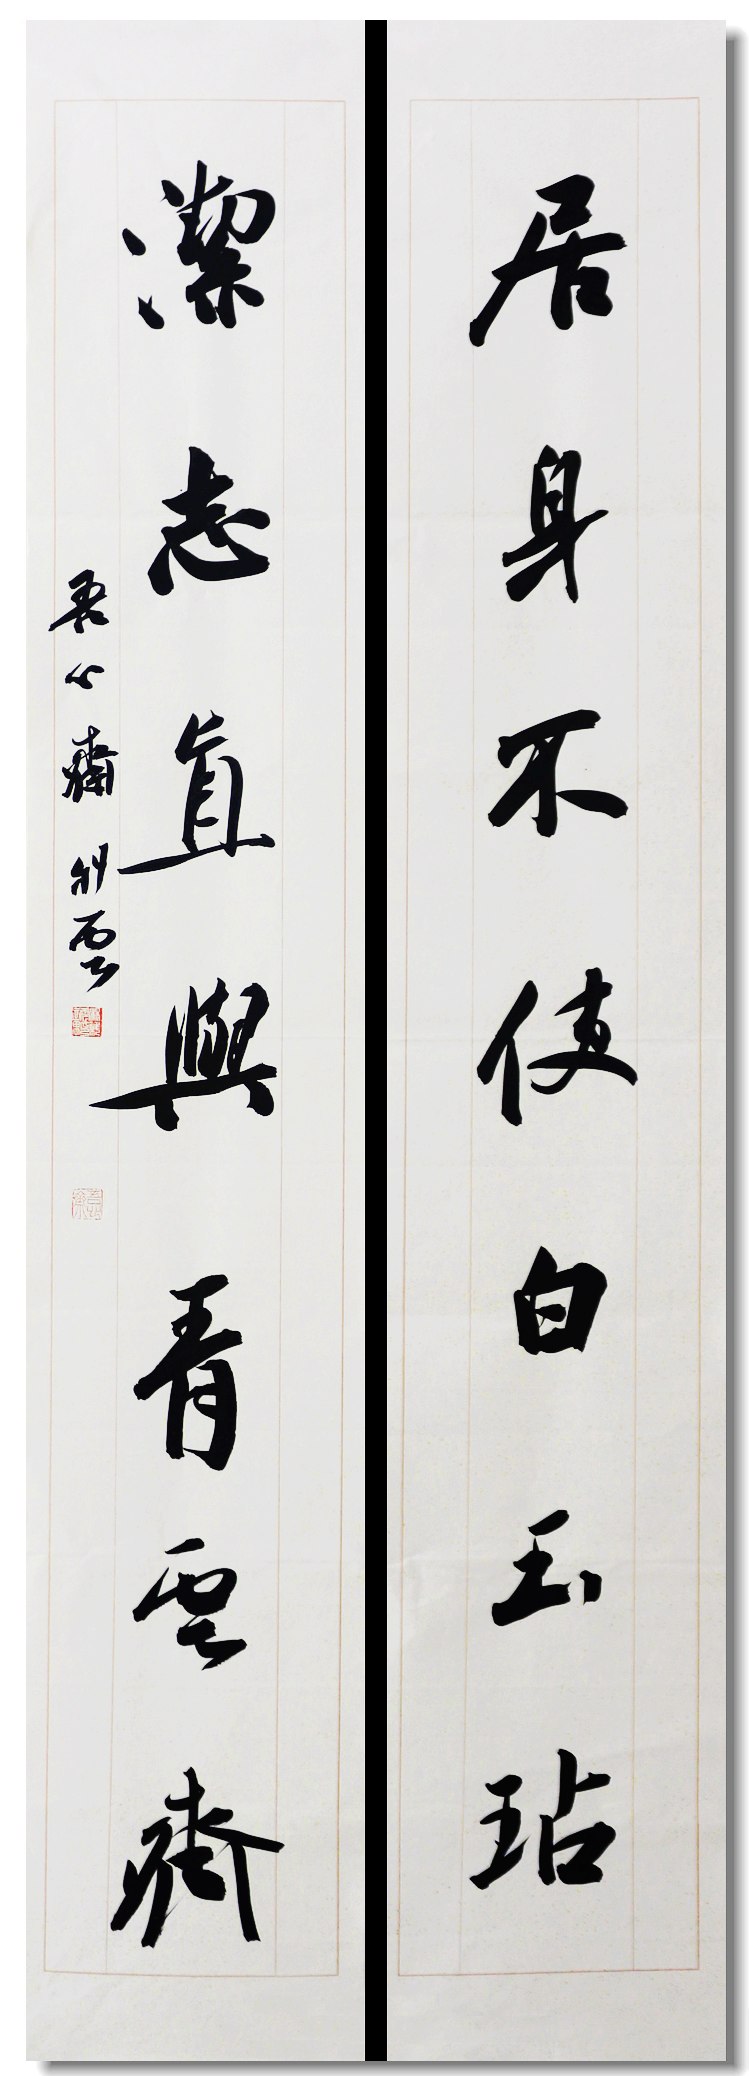 居身不使白玉玷
潔志直與青雲齊
吾心齋 外雲